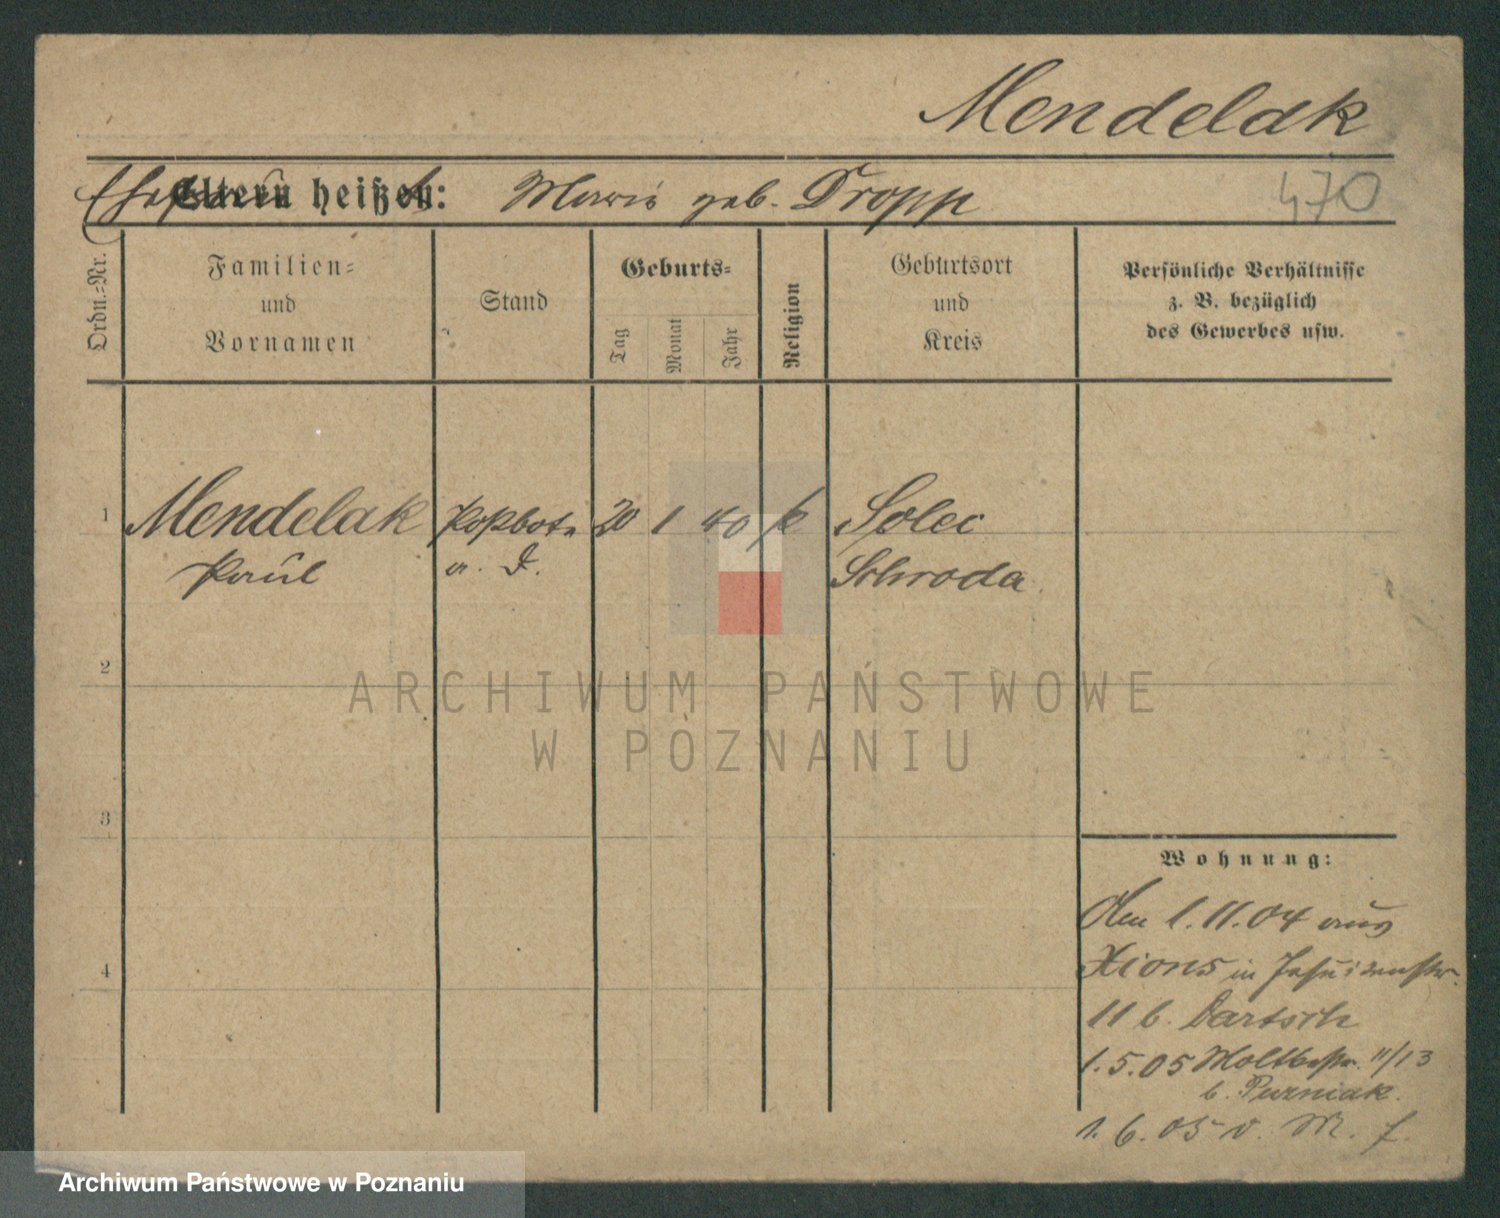 Mendelak
Eltern heißen: Marie geb. Dropp
470
Ordn.-Nr.
Familien-
und
Vornamen
Stand
Geburts-
Tag
Monat
Jahr
Religion
Geburtsort
und
Kreis
Persönliche Verhältnisse
z. B. bezüglich
des Gewerbes usw.
1 Mendelak Postbote 20 1 40 k Solec
Paul a. D. Schroda
2
ARCHIWUM PAŃSTWOWE
W POZNANIU
3
Wohnung:
Am 1.11.04 aus
Xions in Jesuitenstr.
4
11 b. Bartsch
1.5.05 Moltkestr. 11/13
b. Puzniak.
1.6.05 v. M. f.
Archiwum Państwowe w Poznaniu